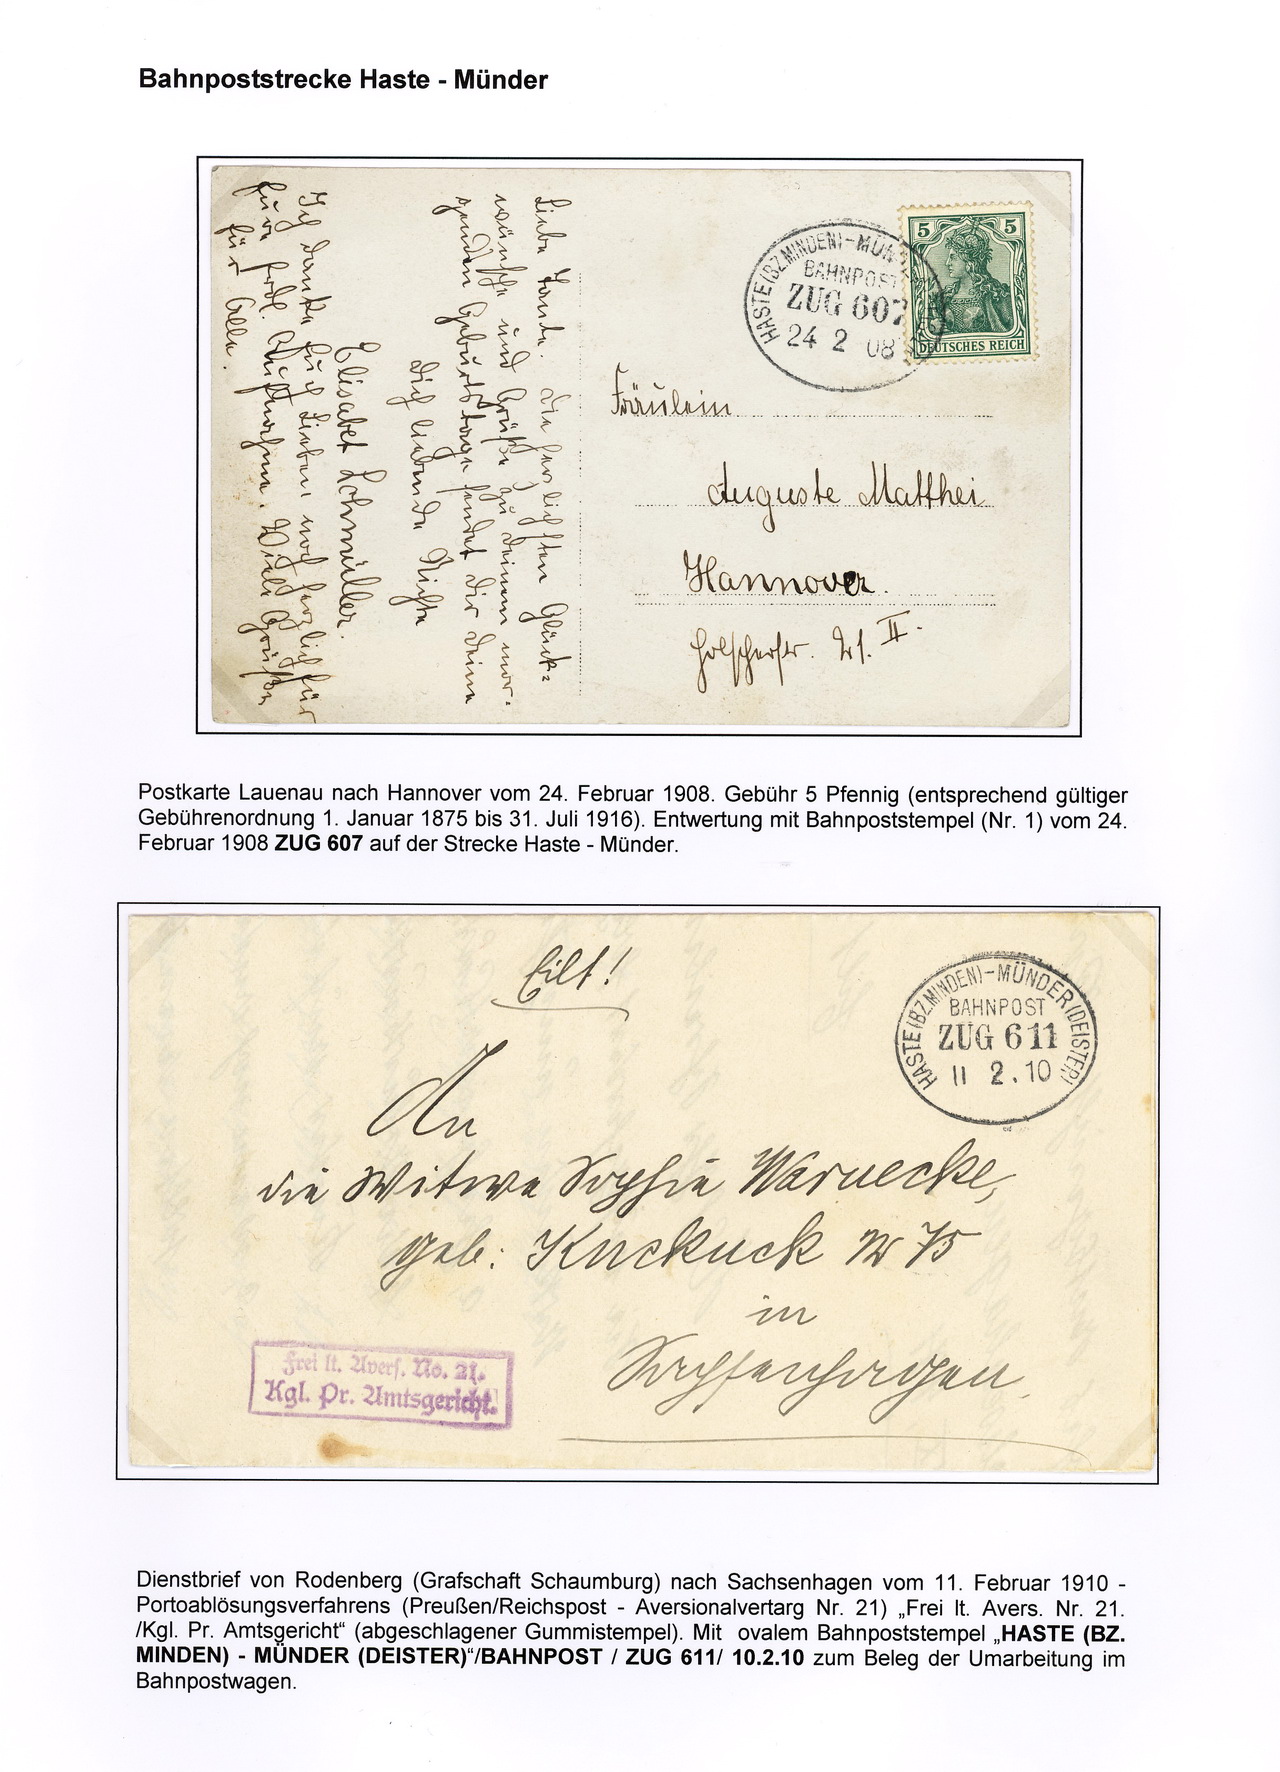 Bahnpoststrecke Haste - Münder
Liebe Tante. Die herzlichsten Glück=
wünsche und Grüße zu deinem mor-
genden Geburtstage sendet dir deine
dich liebende Nichte
Elisabet Lohmüller.
Ich danke Euch Lieben noch herzlich für
Eure frdl. Aufnahme. Viele Grüße
für Alle.
HASTE (BZ.MINDEN)-MÜN
BAHNPOST
ZUG 607
24 2 08
5 5
DEUTSCHES REICH
Fräulein
Auguste Matthei
Hannover.
II.
Postkarte Lauenau nach Hannover vom 24. Februar 1908. Gebühr 5 Pfennig (entsprechend gültiger
Gebührenordnung 1. Januar 1875 bis 31. Juli 1916). Entwertung mit Bahnpoststempel (Nr. 1) vom 24.
Februar 1908 ZUG 607 auf der Strecke Haste - Münder.
Eilt!
HASTE (BZ.MINDEN)-MÜNDER (DEISTER)
BAHNPOST
ZUG 611
11 2.10
An
die Witwe Sophie Warnecke,
geb: Kuckuck Nr 75
in
Sachsenhagen.
Frei lt. Avers. No. 21.
Kgl. Pr. Amtsgericht.
Dienstbrief von Rodenberg (Grafschaft Schaumburg) nach Sachsenhagen vom 11. Februar 1910 -
Portoablösungsverfahrens (Preußen/Reichspost - Aversionalvertarg Nr. 21) „Frei lt. Avers. Nr. 21.
/Kgl. Pr. Amtsgericht“ (abgeschlagener Gummistempel). Mit ovalem Bahnpoststempel „HASTE (BZ.
MINDEN) - MÜNDER (DEISTER)“/BAHNPOST / ZUG 611/ 10.2.10 zum Beleg der Umarbeitung im
Bahnpostwagen.